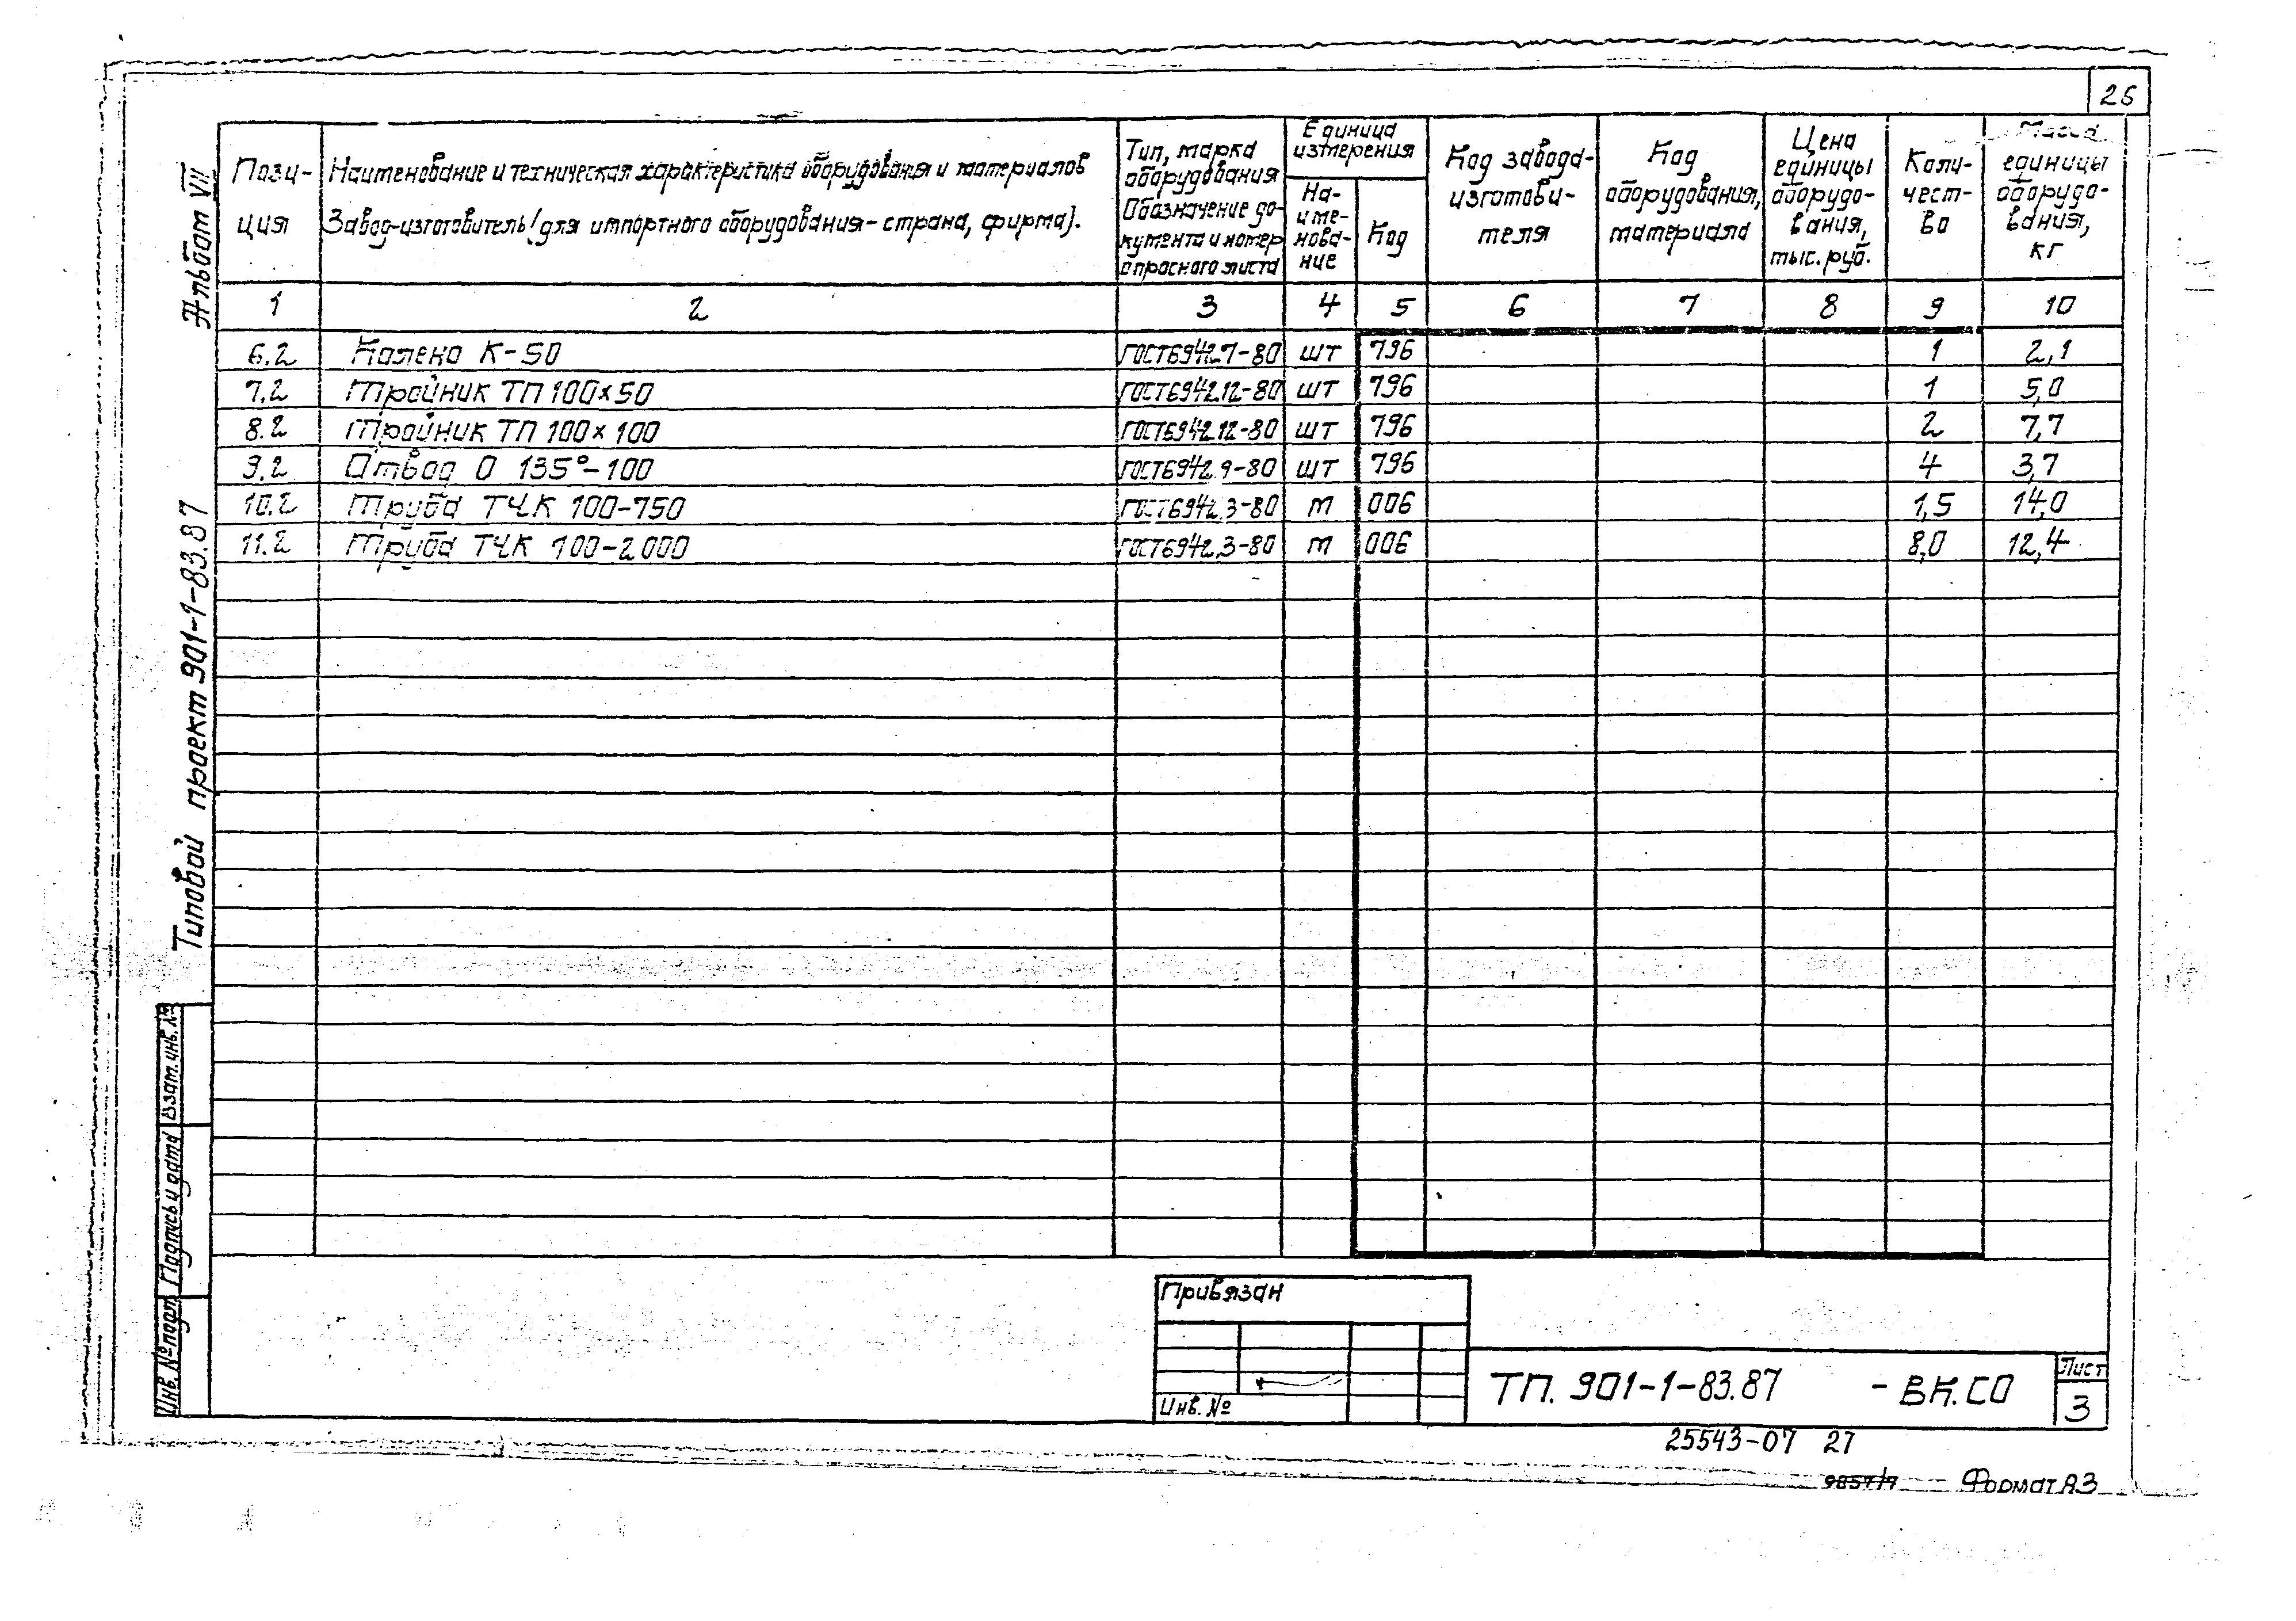 26
Альбом VII
Типовой проект 901-1-83.87
Пози-
ция
Наименование и техническая характеристика оборудования и материалов
Завод-изготовитель (для импортного оборудования - страна, фирма).
Тип, марка
оборудования
Обозначение до-
кумента и номер
опросного листа
Единица
измерения
На-
име-
нова-
ние
Код
Код завода-
изготови-
теля
Код
оборудования,
материала
Цена
единицы
оборудо-
вания,
тыс. руб.
Коли-
чест-
во
Масса
единицы
оборудо-
вания,
кг
1 2 3 4 5 6 7 8 9 10
6.2 Колено К-50 ГОСТ6942.7-80 шт 796 1 2,1
7.2 Тройник ТП 100×50 ГОСТ6942.12-80 шт 796 1 5,0
8.2 Тройник ТП 100×100 ГОСТ6942.12-80 шт 796 2 7,7
9.2 Отвод О 135°-100 ГОСТ6942.9-80 шт 796 4 3,7
10.2 Труба ТЧК 100-750 ГОСТ6942.3-80 м 006 1,5 14,0
11.2 Труба ТЧК 100-2000 ГОСТ6942.3-80 м 006 8,0 12,4
Взам. инв. №
Подпись и дата
Инв. № подл.
Привязан
Инв. №
ТП. 901-1-83.87 - ВК.СО
Лист
3
25543-07 27
9857/7 Формат А3